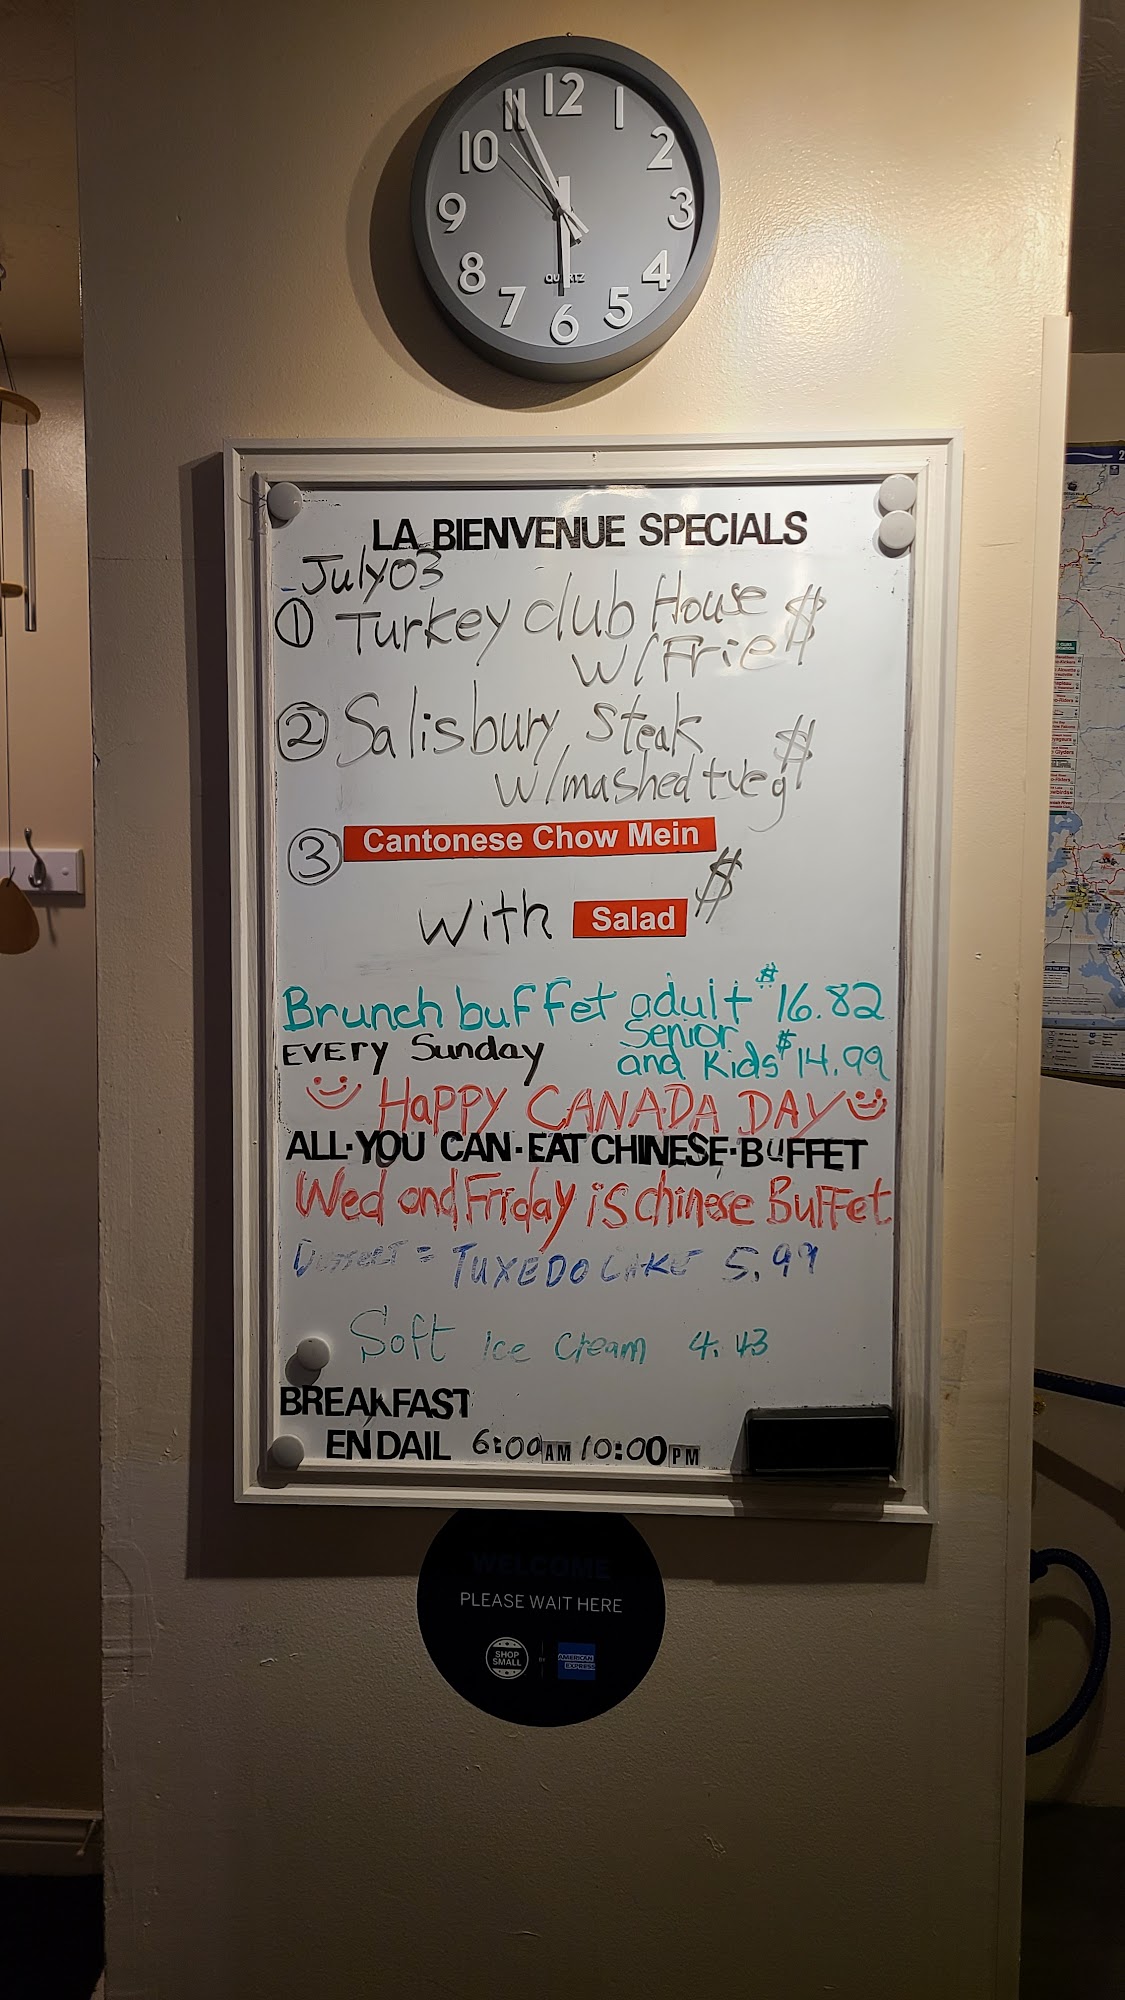 12
1
2
3
4
5
6
7
8
9
10
11
QUARTZ
LA BIENVENUE SPECIALS
July 03
① Turkey club House $
W/Frie
② Salisbury Steak $
w/mashed + veg
③ Cantonese Chow Mein
With Salad $
Brunch buffet adult $16.82
EVERY Sunday Senior
and Kids $14.99
HAPPY CANADA DAY
ALL·YOU CAN·EAT CHINESE·BUFFET
Wed and Friday is chinese Buffet
Dessert = TUXEDO CAKE 5.99
Soft Ice Cream 4.43
BREAKFAST
EN DAIL 6:00AM 10:00PM
WELCOME
PLEASE WAIT HERE
SHOP SMALL BY AMERICAN EXPRESS